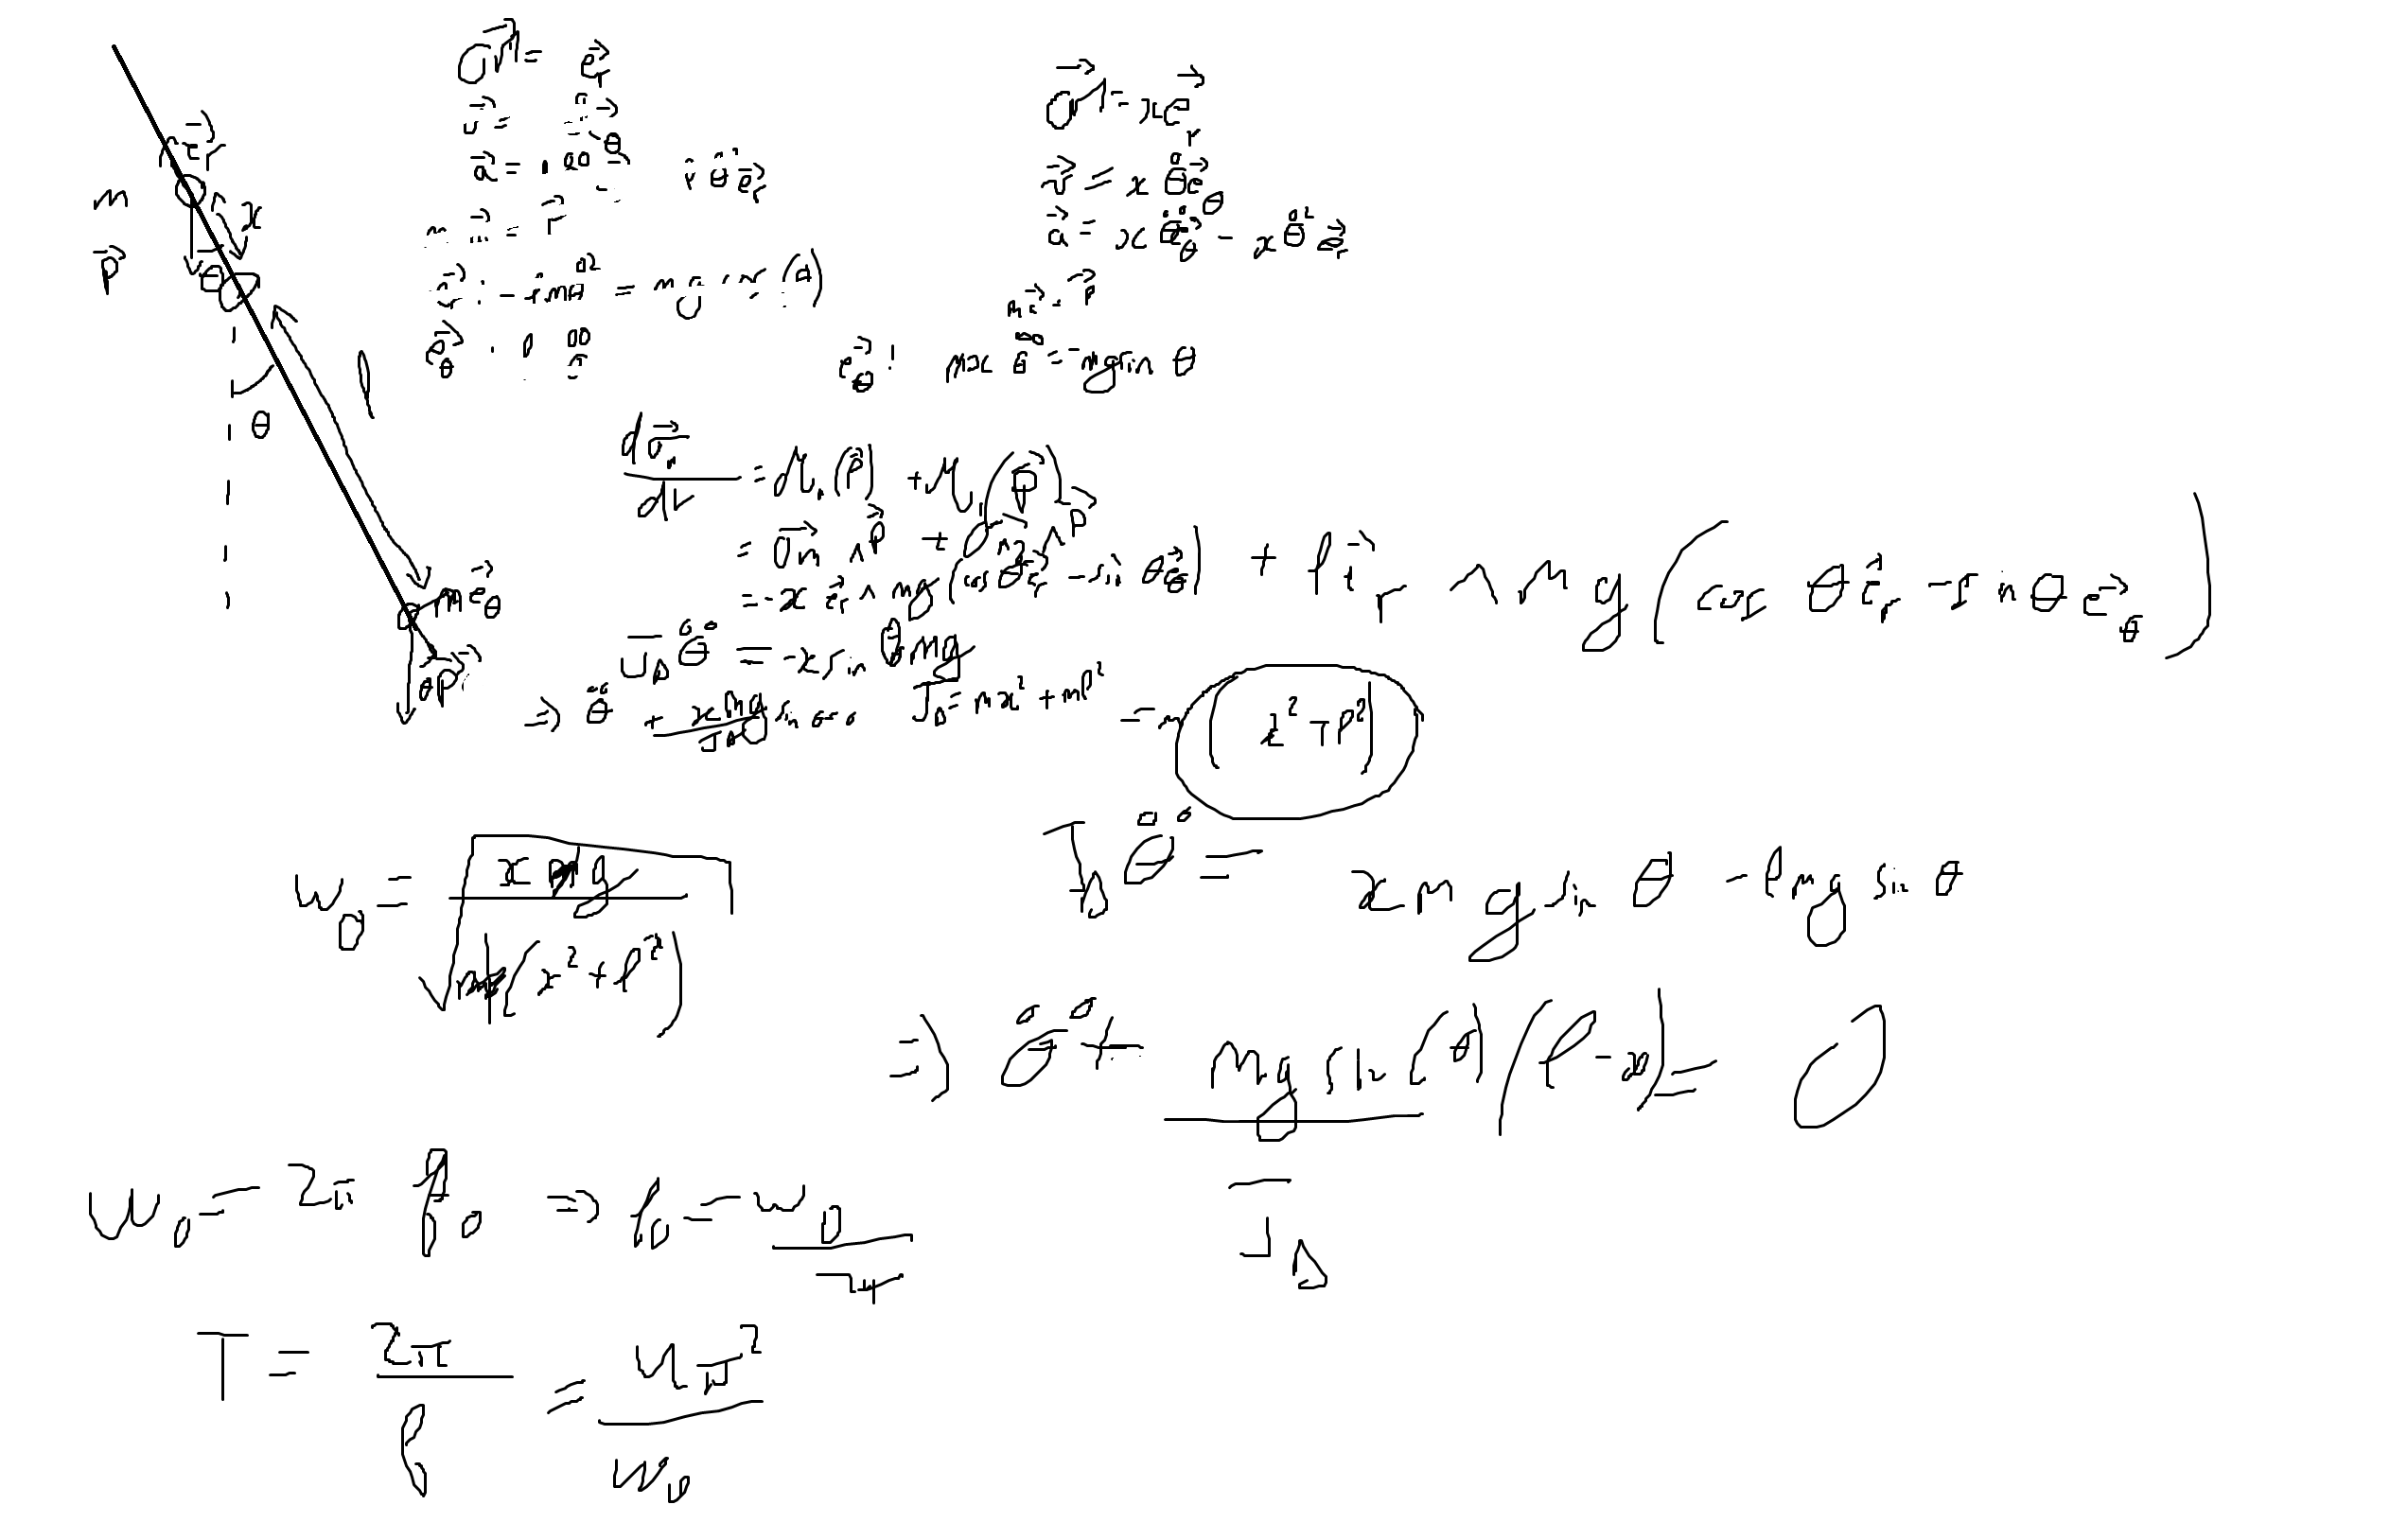 m
p⃗
e⃗r
x
θ
l
θ
m e⃗θ
P⃗
OM⃗ = e⃗r
v⃗ =
a⃗ =
θ̊² e⃗r
e⃗r : - l m θ̊² = mg cos(θ)
e⃗θ :
OM⃗ = x e⃗r
v⃗ = x θ̊ e⃗θ
a⃗ = x θ̊̊ e⃗θ - x θ̊² e⃗r
m a⃗ = P⃗
e⃗θ : m x θ̊̊ = -mg sin θ
dσ⃗/dt = M(P⃗) + M(P⃗)
= OM⃗ ∧ P⃗ + OM⃗₂ ∧ P⃗
= -x e⃗r ∧ mg (cos θ e⃗r - sin θ e⃗θ) + l e⃗r ∧ mg (cos θ e⃗r - sin θ e⃗θ)
JΔ θ̊̊ = -x sin θ mg
⇒ θ̊̊ + x mg / JΔ sin θ = 0 JΔ = mx² + ml² = m (x² + l²)
ω₀ = √( x mg / m (x² + l²) )
JΔ θ̊̊ = x mg sin θ - l mg sin θ
⇒ θ̊̊ + mg sin(θ) / JΔ (l - x) = 0
ω₀ = 2π f₀ ⇒ f₀ = ω₀ / 2π
T = 2π / f = 4π² / ω₀